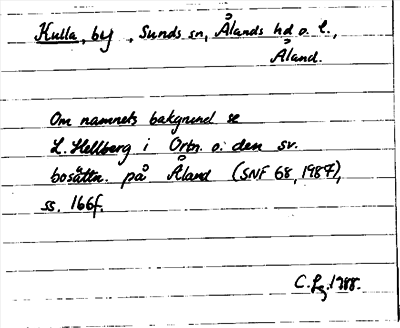 Kulla, by, Sunds sn, Ålands hd o. l.,
Åland.
Om namnets bakgrund se
L. Hellberg i Ortn. o. den sv.
bosättn. på Åland (SNF 68, 1987),
ss. 166f.
C. 1988.